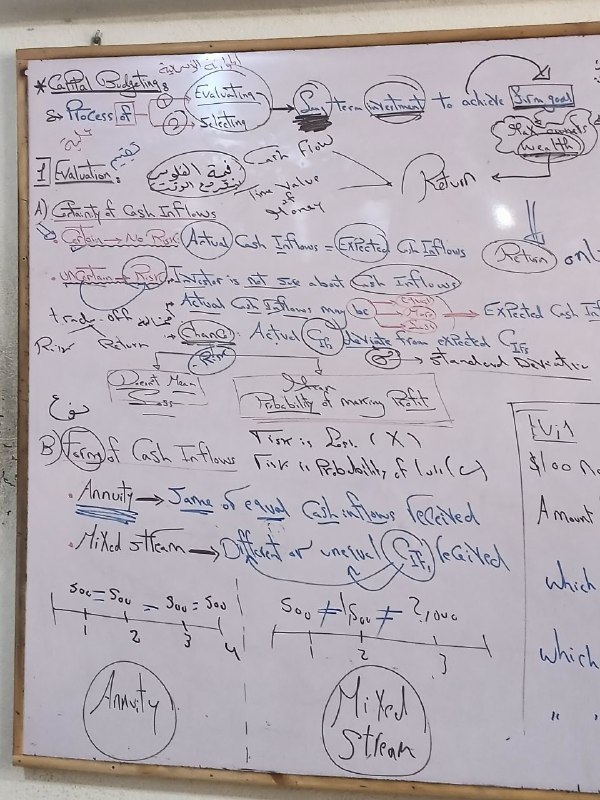 الموازنة الرأسمالية
* Capital Budgeting:
Process of ① Evaluating ② Selecting → Long term investment to achieve firm goal
عملية
wealth
1 Evaluation: تقييم
قيمة الفلوس بتتغير مع الوقت
Cash flow
Time Value of Money
Return
A) Certainty of Cash Inflows
• Certain → No Risk: Actual Cash Inflows = Expected Cash Inflows
Return only
• uncertain → Risk: Investor is not sure about Cash Inflows
Actual Cash Inflows may be equal More Less → Expected Cash Inf
trade-off
Risk Return
→ Chance: Actual CIFs deviate from expected CIFs
Risk
→ Standard Deviation
Doesn't Mean Loss
Probability of making Profit
نوع
B) Form of Cash Inflows
Risk is Loss. (X)
Risk is Probability of
• Annuity → Same or equal Cash inflows received
• Mixed stream → Different or unequal CIFs received
500 = 500 = 500 = 500
1 2 3 4
500 ≠ 1,500 ≠ 2,000
1 2 3
Annuity
Mixed Stream
$100
Amount
which
which
" "